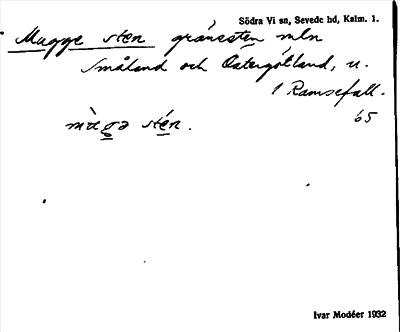 Södra Vi sn, Sevede hd, Kalm. l.
Mugge sten gränssten mln
Småland och Östergötland, u.
1 Ramsefall.
65
mùgə sté̱n.
Ivar Modéer 1932